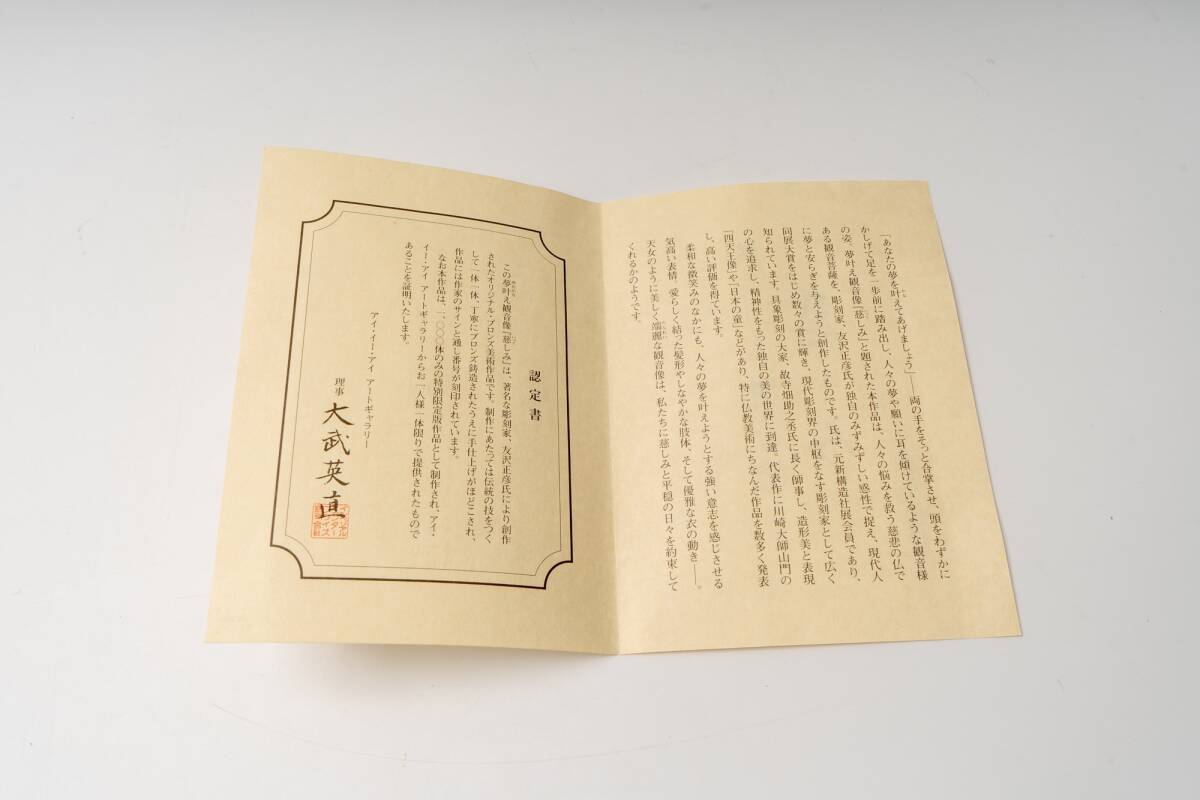 「あなたの夢を叶えてあげましょう」── 両の手をそっと合掌させ、頭をわずかに
かしげて足を一歩前に踏み出し、人々の夢や願いに耳を傾けているような観音様
の姿。夢叶え観音像『慈しみ』と題された本作品は、人々の悩みを救う慈悲の仏で
ある観音菩薩を、彫刻家、友沢正彦氏が独自のみずみずしい感性で捉え、現代人
に夢と安らぎを与えようと創作したものです。氏は、元新構造社展会員であり、
同展大賞をはじめ数々の賞に輝き、現代彫刻界の中枢をなす彫刻家として広く
知られています。具象彫刻の大家、故寺畑助之丞氏に長く師事し、造形美と表現
の心を追求し、精神性をもった独自の美の世界に到達。代表作に川崎大師山門の
「四天王像」や「日本の童」などがあり、特に仏教美術にちなんだ作品を数多く発表
し、高い評価を得ています。
柔和な微笑みのなかにも、人々の夢を叶えようとする強い意志を感じさせる
気高い表情、愛らしく結った髪形やしなやかな肢体、そして優雅な衣の動き──。
天女のように美しく端麗な観音像は、私たちに慈しみと平穏の日々を約束して
くれるかのようです。
認定書
この夢叶え観音像『慈しみ』は、著名な彫刻家、友沢正彦氏により創作
されたオリジナル・ブロンズ美術作品です。制作にあたっては伝統の技をつく
して一体一体、丁寧にブロンズ鋳造されたうえに手仕上げがほどこされ、
作品には作家のサインと通し番号が刻印されています。
なお本作品は、一、〇〇〇体のみの特別限定版作品として制作され、アイ・
イー・アイ アートギャラリーからお一人様一体限りで提供されたもので
あることを証明いたします。
アイ・イー・アイ アートギャラリー
理事 大武英直